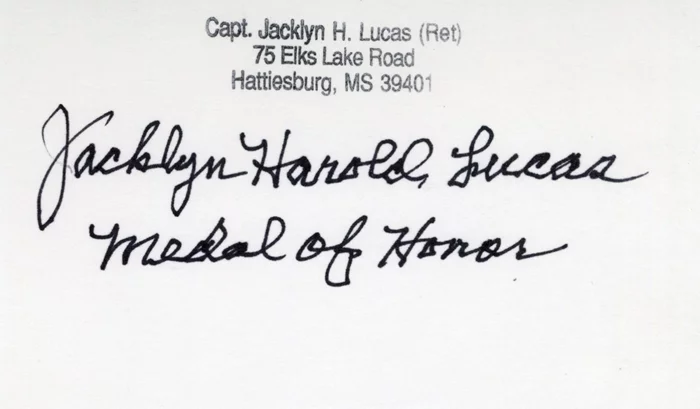 Capt. Jacklyn H. Lucas (Ret)
75 Elks Lake Road
Hattiesburg, MS 39401
Jacklyn Harold Lucas
Medal of Honor